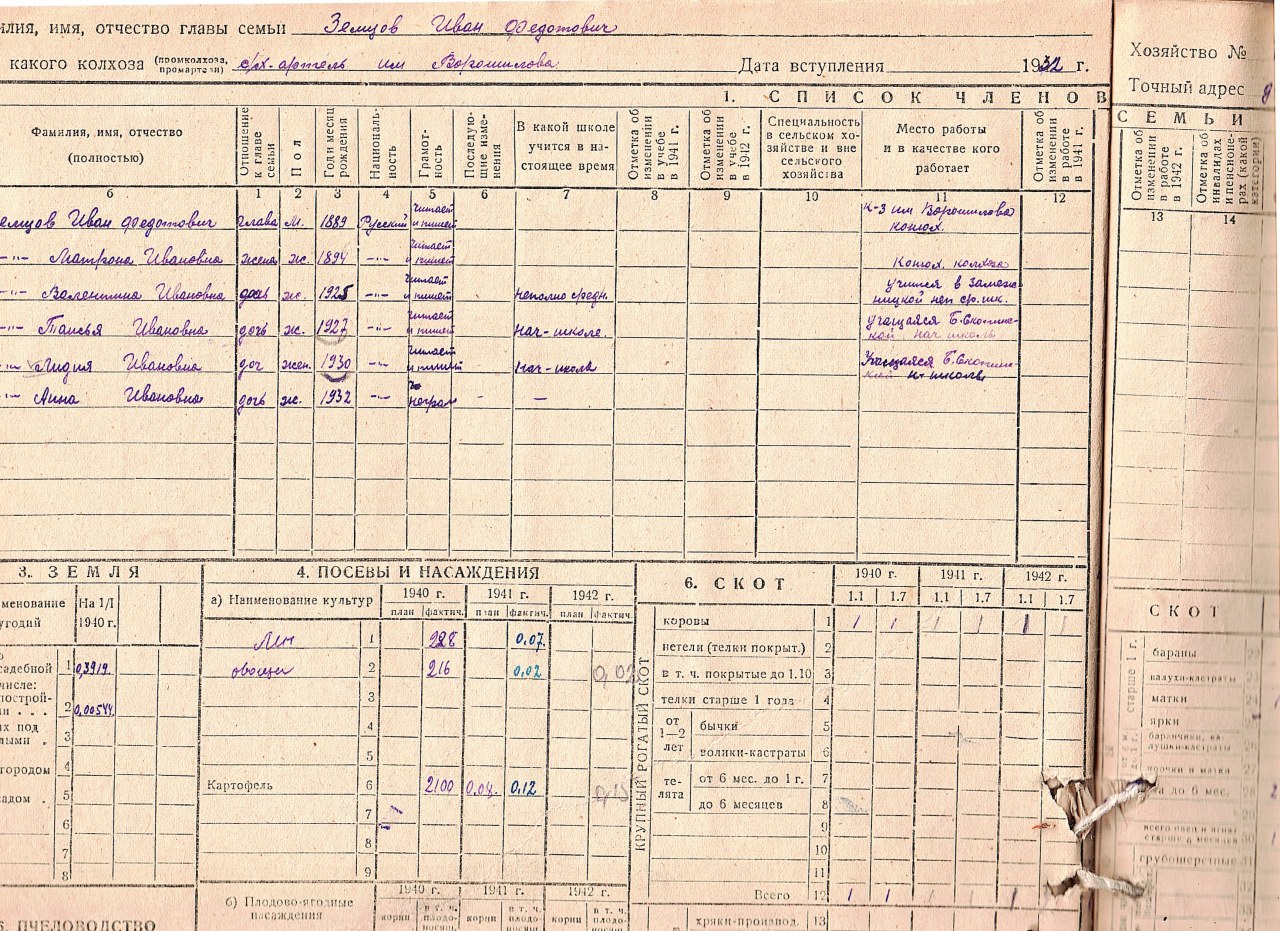 илия, имя, отчество главы семьи Земцов Иван Федотович
какого колхоза (промколхоза, промартели) с/х-артель им Ворошилова Дата вступления 1932 г.
Хозяйство №
Точный адрес
1. СПИСОК ЧЛЕНОВ СЕМЬИ
Фамилия, имя, отчество (полностью) Отношение к главе семьи Пол Год и месяц рождения Националь-ность Грамот-ность Последую-щие изме-нения В какой школе учится в на-стоящее время Отметка об изменении в учебе в 1941 г. Отметка об изменении в учебе в 1942 г. Специальность в сельском хо-зяйстве и вне сельского хозяйства Место работы и в качестве кого работает Отметка об изменении в работе в 1941 г. Отметка об изменении в работе в 1942 г. Отметка об инвалидах и пенсионе-рах (какой категории)
б 1 2 3 4 5 6 7 8 9 10 11 12 13 14
емцов Иван Федотович глава м. 1889 Русский читает и пишет к-з им Ворошилова конюх.
—"— Матрона Ивановна жена ж. 1894 —"— читает и пишет Конюх. колхоза
—"— Валентина Ивановна дочь ж. 1925 —"— читает и пишет неполно средн. учится в ницкой неп ср. шк.
—"— Таисья Ивановна дочь ж. 1927 —"— читает и пишет нач-школе. учащаяся нач школы
—"— Лидия Ивановна доч жен. 1930 —"— читает и пишет нач-школа Учащаяся н-школы
—"— Анна Ивановна дочь ж. 1932 —"— неграм - —
3. ЗЕМЛЯ
менование угодий На 1/I 1940 г.
садебной 1 0,3919
числе:
построй-
. . . 2 0,00544
х под
лыми . 3
городом 4
адом . 5
6
7
8
4. ПОСЕВЫ И НАСАЖДЕНИЯ
а) Наименование культур 1940 г. 1941 г. 1942 г.
план фактич. план фактич. план фактич.
Лен 1 228 0.07.
овощи 2 216 0,02 0,02
3
4
5
Картофель 6 2100 0.08. 0,12 0,15
7
8
9
б) Плодово-ягодные насаждения 1940 г. 1941 г. 1942 г.
корни в т. ч. плодо-носящ. корни в т. ч. плодо-носящ. корни в т. ч. плодо-носящ.
ПЧЕЛОВОДСТВО
6. СКОТ 1940 г. 1941 г. 1942 г.
1.1 1.7 1.1 1.7 1.1 1.7
КРУПНЫЙ РОГАТЫЙ СКОТ
коровы 1 1 1 1 1 1 1
нетели (телки покрыт.) 2
в т. ч. покрытые до 1.10 3
телки старше 1 года 4
от 1—2 лет бычки 5
волики-кастраты 6
те-лята от 6 мес. до 1 г. 7
до 6 месяцев 8
9
10
11
Всего 12 1 1 1 1 1
хряки-производ. 13
СКОТ
старше 1 г.
бараны
валухи-кастраты
матки
ярки
баранчики, ва-лушки-кастраты
ярочки и матки
до 6 мес.
всего овец и ягнят старше 6 месяцев
грубошерстные